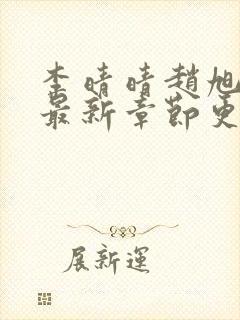 李晴晴趙旭
最新章節更
展新運